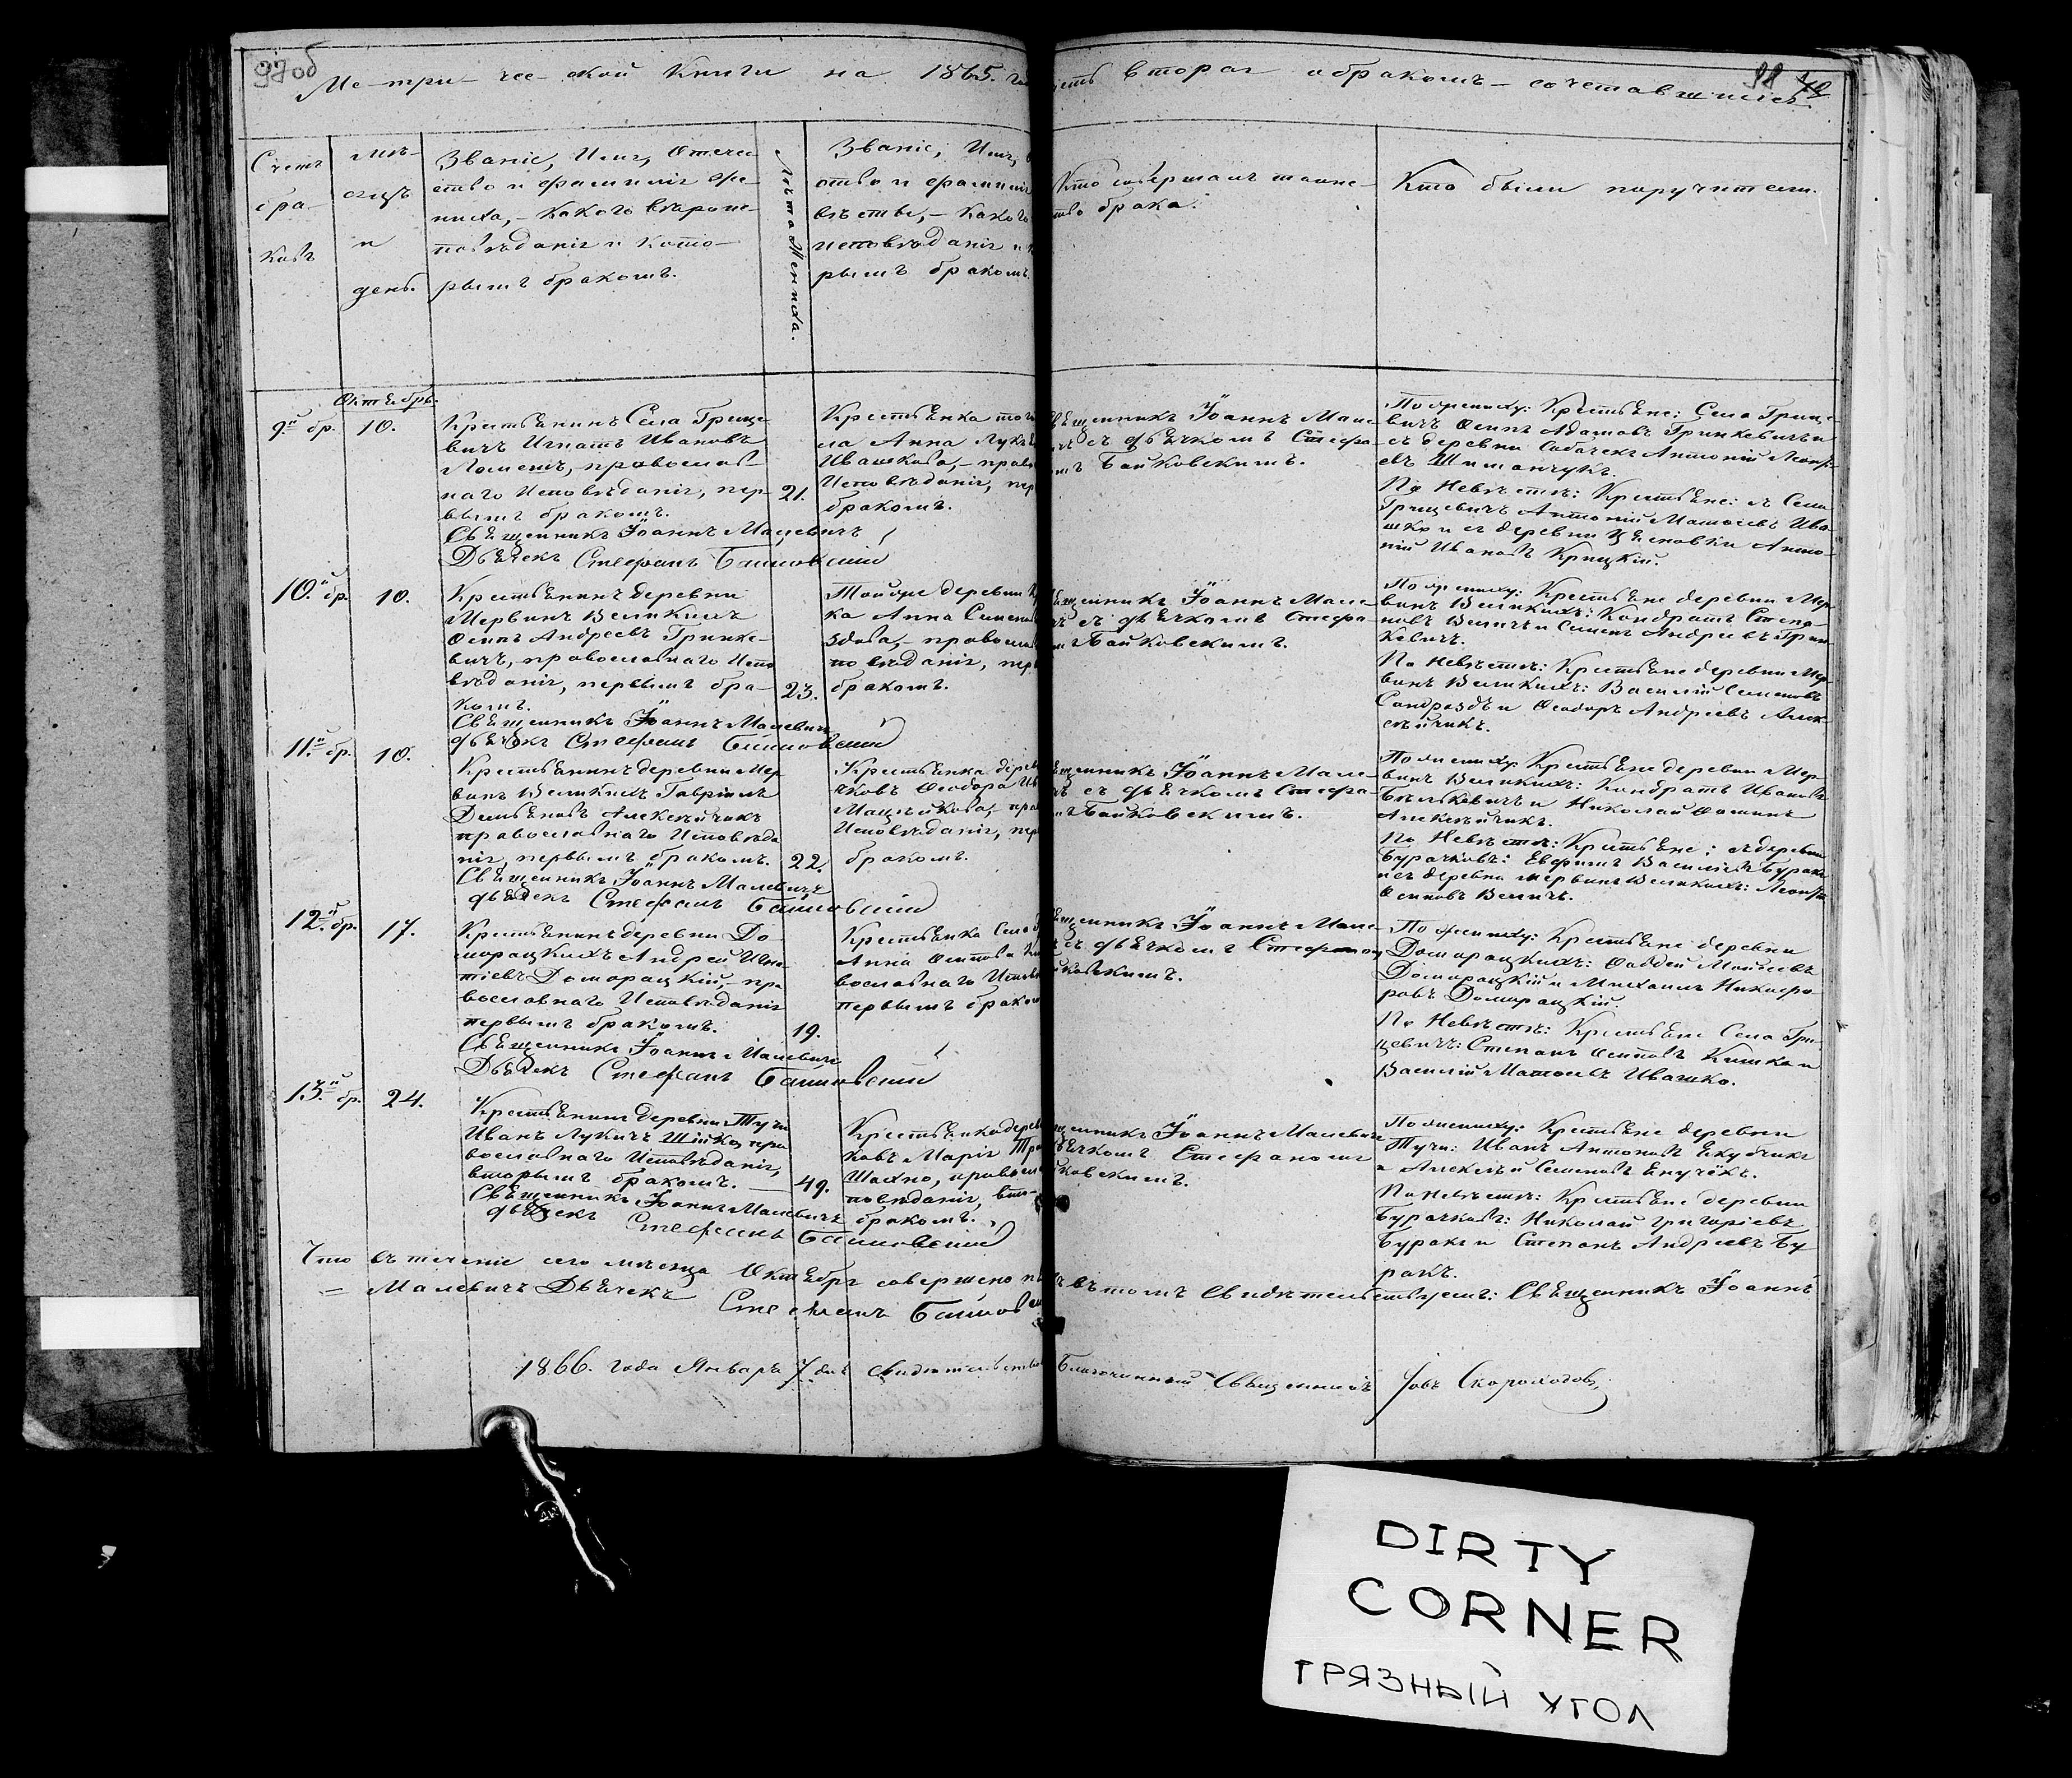 97об
98
Ме-три-чес-кой Книги на 1865. го
сть вторая о бракомъ-сочетавшихся.
Счетъ
бра-
ковъ
мѣ-
сяцъ
и
день.
Званіе, Имя, Отече-
ство и фамилія же-
ниха,- какого вѣроис-
повѣданія и кото-
рымъ бракомъ.
Лѣта Жениха.
Званіе, Имя,
ство и фамилія
вѣсты,- какого
исповѣданія и
рымъ бракомъ.
Кто совершалъ таин-
ство брака.
Кто были поручители.
Октябрь.
9й бр.
10.
Крестьянинъ Села Грице-
вичъ Игнатъ Ивановъ
православ-
наго Исповѣданія, пер-
вымъ бракомъ.
21.
Священникъ Іоаннъ Малевичъ
Дьячекъ Стефанъ Байковскій
Крестьянка того
ла Анна Лукъ
Ивашкова,- право
Исповѣданія, пер
бракомъ.
вященникъ Іоаннъ Мале-
чъ съ дьячкомъ Стефа-
мъ Байковскимъ.
По жениху: Крестьяне: Села Грице-
вичъ Осипъ Адамовъ Гринкевичъ и
съ деревни Антоній
евъ Шиманчукъ.
По Невѣстѣ: Крестьяне: съ Села
Грицевичъ Антоній Матвѣевъ Ива-
шко и съ деревни Анто-
ній Ивановъ Крицкій.
10.й бр.
10.
Крестьянинъ деревни
Мервинъ Великихъ
Осипъ Андреевъ Гринке-
вичъ, православнаго Испо-
вѣданія, первымъ бра-
комъ.
23.
Священникъ Іоаннъ Малевичъ
дьячекъ Стефанъ Байковскій
Той же деревни
ка Анна Семено
здова,- православ
повѣданія, пер
бракомъ.
вященникъ Іоаннъ Мале-
чъ съ дьячкомъ Стефа-
мъ Байковскимъ.
По жениху: Крестьяне деревни Мер-
винъ Великихъ: Кондратъ Степа-
новъ Величъ и Семенъ Андреевъ Грин-
кевичъ.
По Невѣстѣ: Крестьяне деревни Мер-
винъ Великихъ: Василій Семеновъ
и Ѳеодоръ Андреевъ Алек-
сѣйчикъ.
11.й бр.
10.
Крестьянинъ деревни Мер-
винъ Великихъ Гавріилъ
Демьяновъ Алексѣйчикъ
православнаго Исповѣда-
нія, первымъ бракомъ.
22.
Священникъ Іоаннъ Малевичъ
дьячекъ Стефанъ Байковскій
Крестьянка дерев
чковъ Ѳеодора Ив
Мацѣйкова,- пра
Исповѣданія, пер
бракомъ.
вященникъ Іоаннъ Мале-
чъ съ дьячкомъ Стефа-
мъ Байковскимъ.
По жениху: Крестьяне деревни Мер-
винъ Великихъ: Кондратъ Ивановъ
Бѣльковичъ и Николай Ѳоминъ
Алексѣйчикъ.
По Невѣстѣ: Крестьяне: съ деревни
Бурачковъ: Евфимъ Василіевъ Буракъ
и съ деревни Мервинъ Великихъ:
Осиповъ Величъ.
12.й бр.
17.
Крестьянинъ деревни До-
морацкихъ Андрей Игна-
тіевъ Доморацкій,- пра
вославнаго Исповѣданія
первымъ бракомъ.
19.
Священникъ Іоаннъ Малевичъ
Дьячекъ Стефанъ Байковскій
Крестьянка Села
Анна Осипова
вославнаго Исповѣ
первымъ бракомъ
вященникъ Іоаннъ Мале-
ъ съ дьячкомъ Стефаном
йковскимъ.
По жениху: Крестьяне деревни
Доморацкихъ: Ѳаддей Моисеевъ
Доморацкій и Михаилъ Никифо-
ровъ Доморацкій.
По Невѣстѣ: Крестьяне Села Гри-
цевичъ: Степанъ Осиповъ Кишко и
Василій Матвѣевъ Ивашко.
13.й бр.
24.
Крестьянинъ деревни Тучи
Иванъ Лукичъ Шійко, пра
вославнаго Исповѣданія,
вторымъ бракомъ.
49.
Священникъ Іоаннъ Малевичъ
дьячекъ Стефанъ Байковскій
Крестьянка дерев
ковъ Марія
Шахно, правосла
повѣданія, вто-
бракомъ.
щенникъ Іоаннъ Малевичъ
дьячкомъ Стефаномъ
йковскимъ.
По жениху: Крестьяне деревни
Тучи: Иванъ Антоновъ Якубчикъ
и Алексѣй Семеновъ
По Невѣстѣ: Крестьяне деревни
Бурачковъ: Николай Григоріевъ
Буракъ и Степанъ Андреевъ Бу-
ракъ.
Что въ теченіе сего мѣсяца Октября совершено
въ томъ Свидѣтельствуемъ: Священникъ Іоаннъ
= Малевичъ Дьячекъ Стефанъ Байковскій
1866. года Января 7. дня Свидѣтельство Благочинный Священникъ Іовъ Скороходовъ
DIRTY
CORNER
ГРЯЗНЫЙ УГОЛ